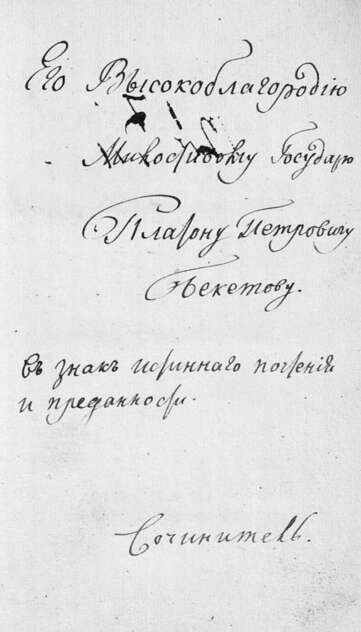 Его Высокоблагородію
Милостивому Государю
Платону Петровичу
Бекетову.
въ знакъ истиннаго почтенія
и преданности.
Сочинитель.